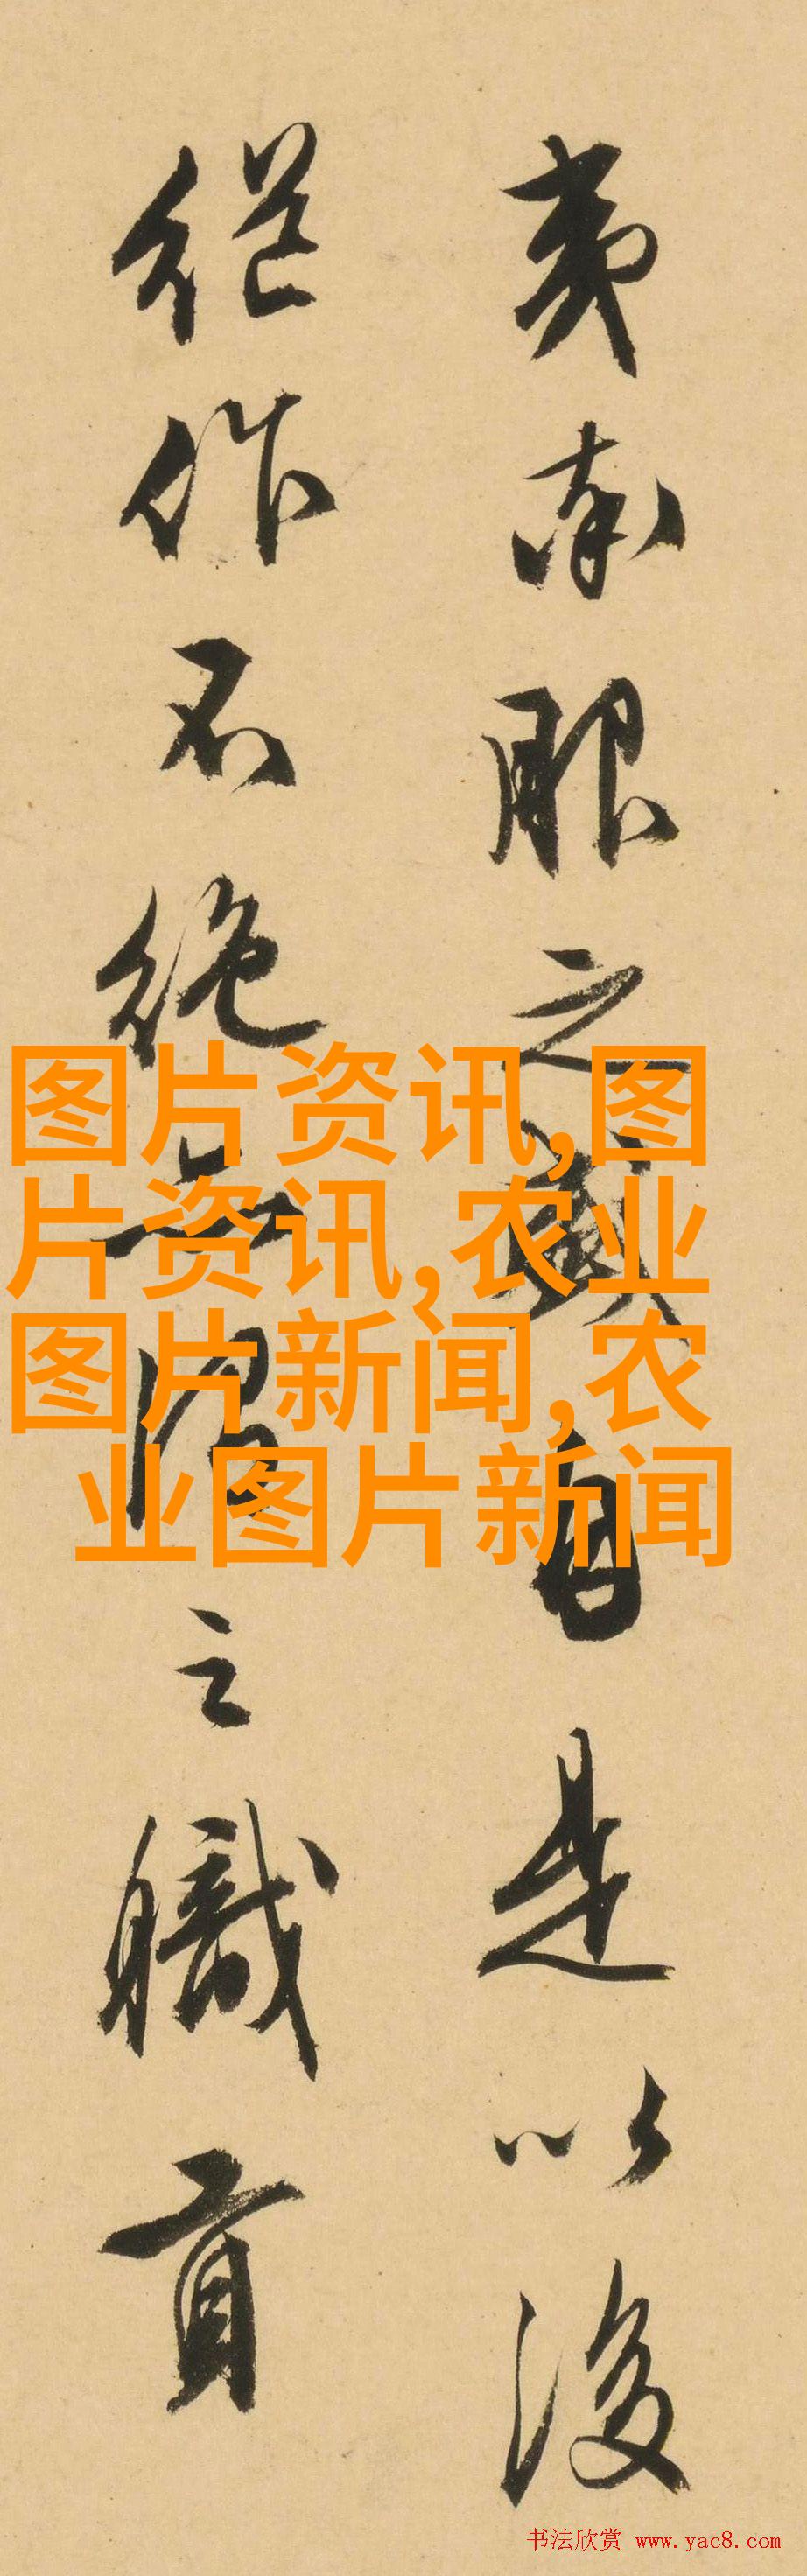 夷服之自是以後
継作不絶之職貢
图片资讯,图
片资讯,农业
图片新闻,农
业图片新闻
书法欣赏 www.yac8.com